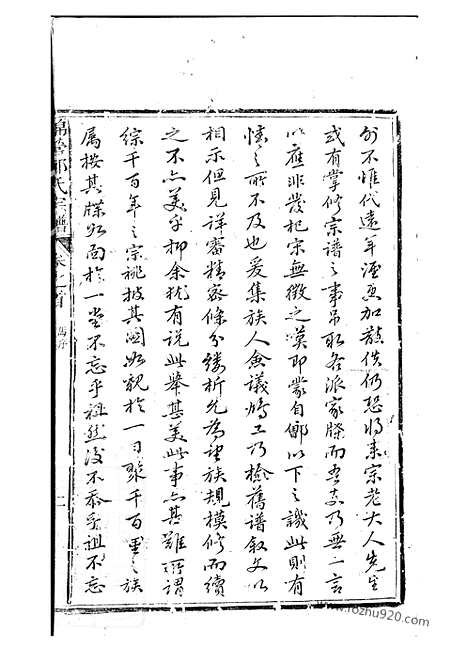 外不惟代遠年湮更加散佚仍恐將來宗老大人先生
或有掌修宗譜之事吊取各派家牒而吾支乃無一言
以應非發杞宋無徵之嘆即蒙自鄶以下之譏此則有
情之所不及也爰集族人僉議鳩工乃檢舊譜叙文以
相示但見詳審精密條分縷析允為望族規模修而續
之不亦美乎抑余猶有說此舉甚美此事亦甚難所謂
綜千百年之宗祧披其圖如親於一日聚千百里之族
屬按其牒如面於一堂不忘乎祖然後不忝乎祖不忘
氏宗譜
卷之首
舊序
二
www.rozhu920.com